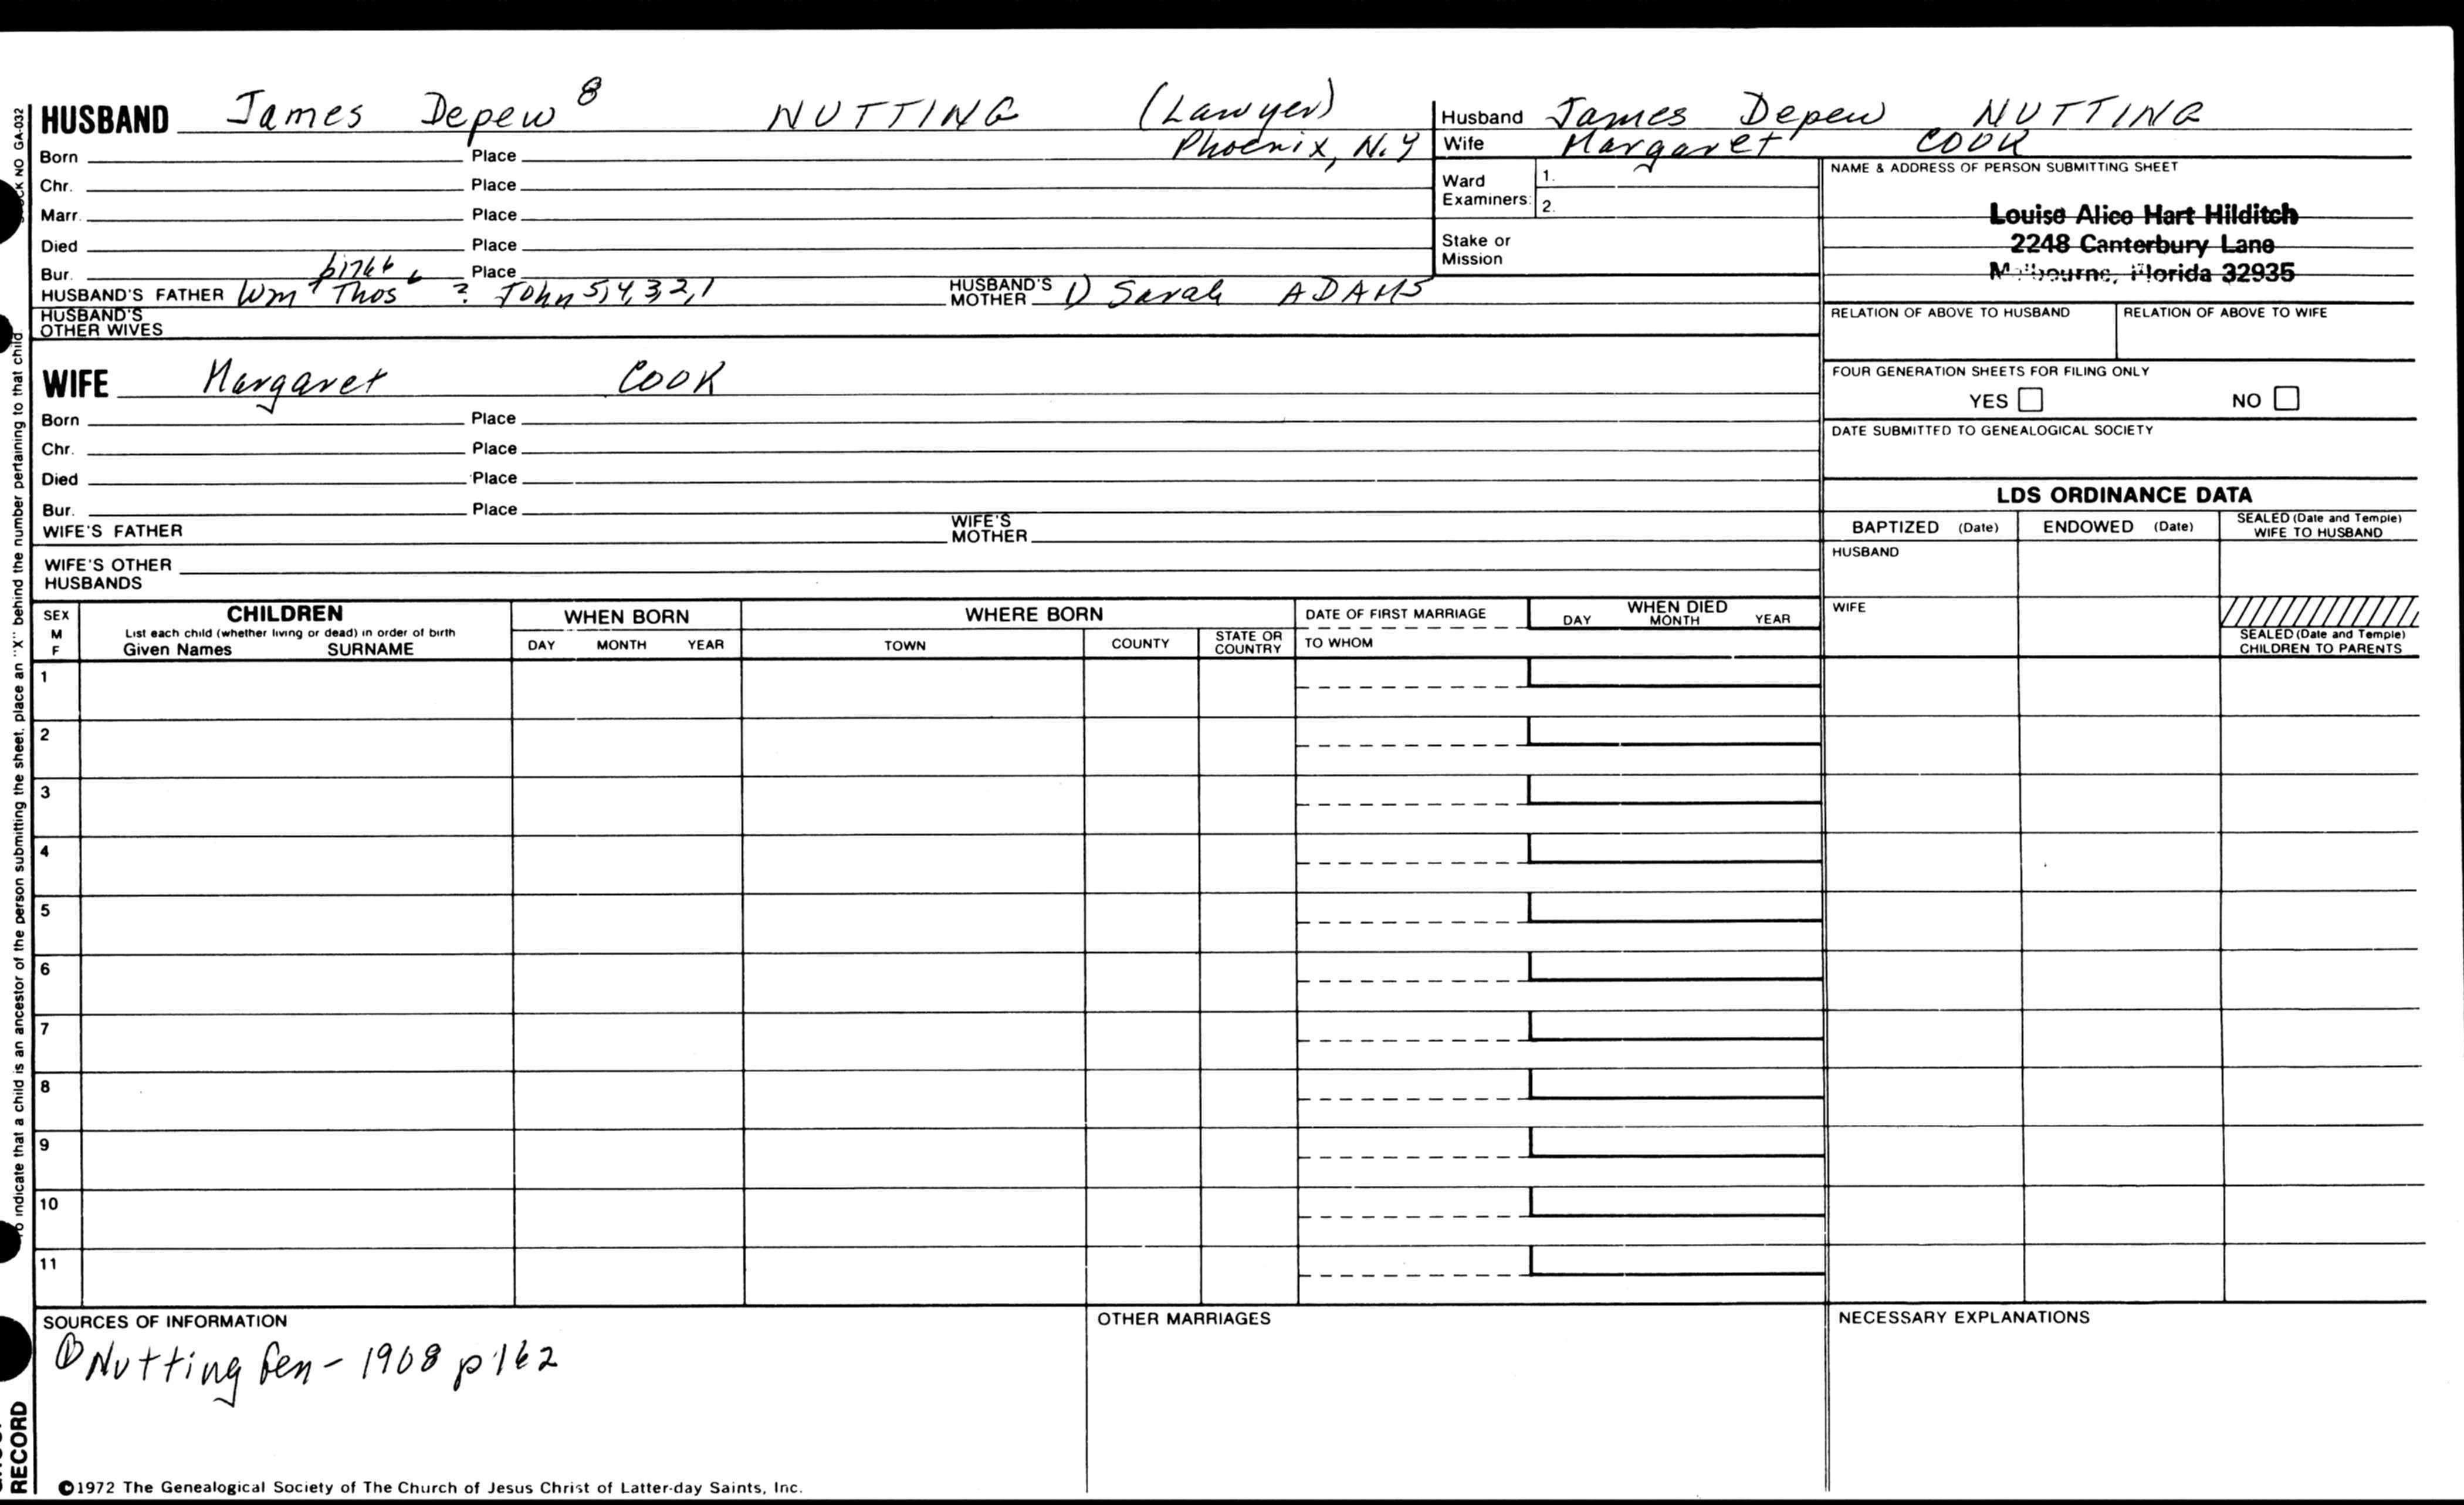 HUSBAND James Depew 8 NUTTING (Lawyer)
Born Place Phoenix, N.Y
Chr. Place
Marr. Place
Died Place
Bur. Place
b1766
HUSBAND'S FATHER Wm 7 Thos 6 ? John 5,4,3,2,1 HUSBAND'S MOTHER 1) Sarah ADAMS
HUSBAND'S OTHER WIVES
WIFE Margaret COOK
Born Place
Chr. Place
Died Place
Bur. Place
WIFE'S FATHER WIFE'S MOTHER
WIFE'S OTHER HUSBANDS
Husband James Depew NUTTING
Wife Margaret COOK
Ward Examiners: 1.
2.
Stake or Mission
NAME & ADDRESS OF PERSON SUBMITTING SHEET
Louise Alice Hart Hilditch
2248 Canterbury Lane
Melbourne, Florida 32935
RELATION OF ABOVE TO HUSBAND RELATION OF ABOVE TO WIFE
FOUR GENERATION SHEETS FOR FILING ONLY
YES NO
DATE SUBMITTED TO GENEALOGICAL SOCIETY
LDS ORDINANCE DATA
BAPTIZED (Date) ENDOWED (Date) SEALED (Date and Temple) WIFE TO HUSBAND
HUSBAND
WIFE
SEALED (Date and Temple) CHILDREN TO PARENTS
SEX M F
CHILDREN
List each child (whether living or dead) in order of birth
Given Names SURNAME
WHEN BORN
DAY MONTH YEAR
WHERE BORN
TOWN COUNTY STATE OR COUNTRY
DATE OF FIRST MARRIAGE
TO WHOM
WHEN DIED
DAY MONTH YEAR
1
2
3
4
5
6
7
8
9
10
11
SOURCES OF INFORMATION
① Nutting Gen - 1908 p 162
OTHER MARRIAGES
NECESSARY EXPLANATIONS
©1972 The Genealogical Society of The Church of Jesus Christ of Latter-day Saints, Inc.
NO GA-032
indicate that a child is an ancestor of the person submitting the sheet, place an "X" behind the number pertaining to that child
RECORD